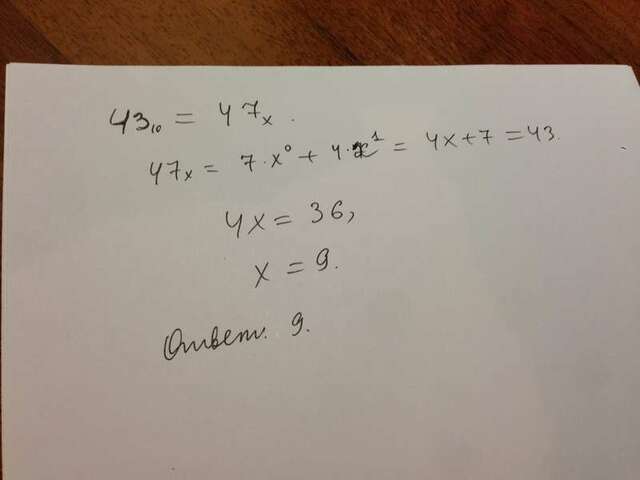 43₁₀ = 47ₓ.
47ₓ = 7·x⁰ + 4·x¹ = 4x+7 = 43.
4x = 36,
x = 9.
Ответ. 9.